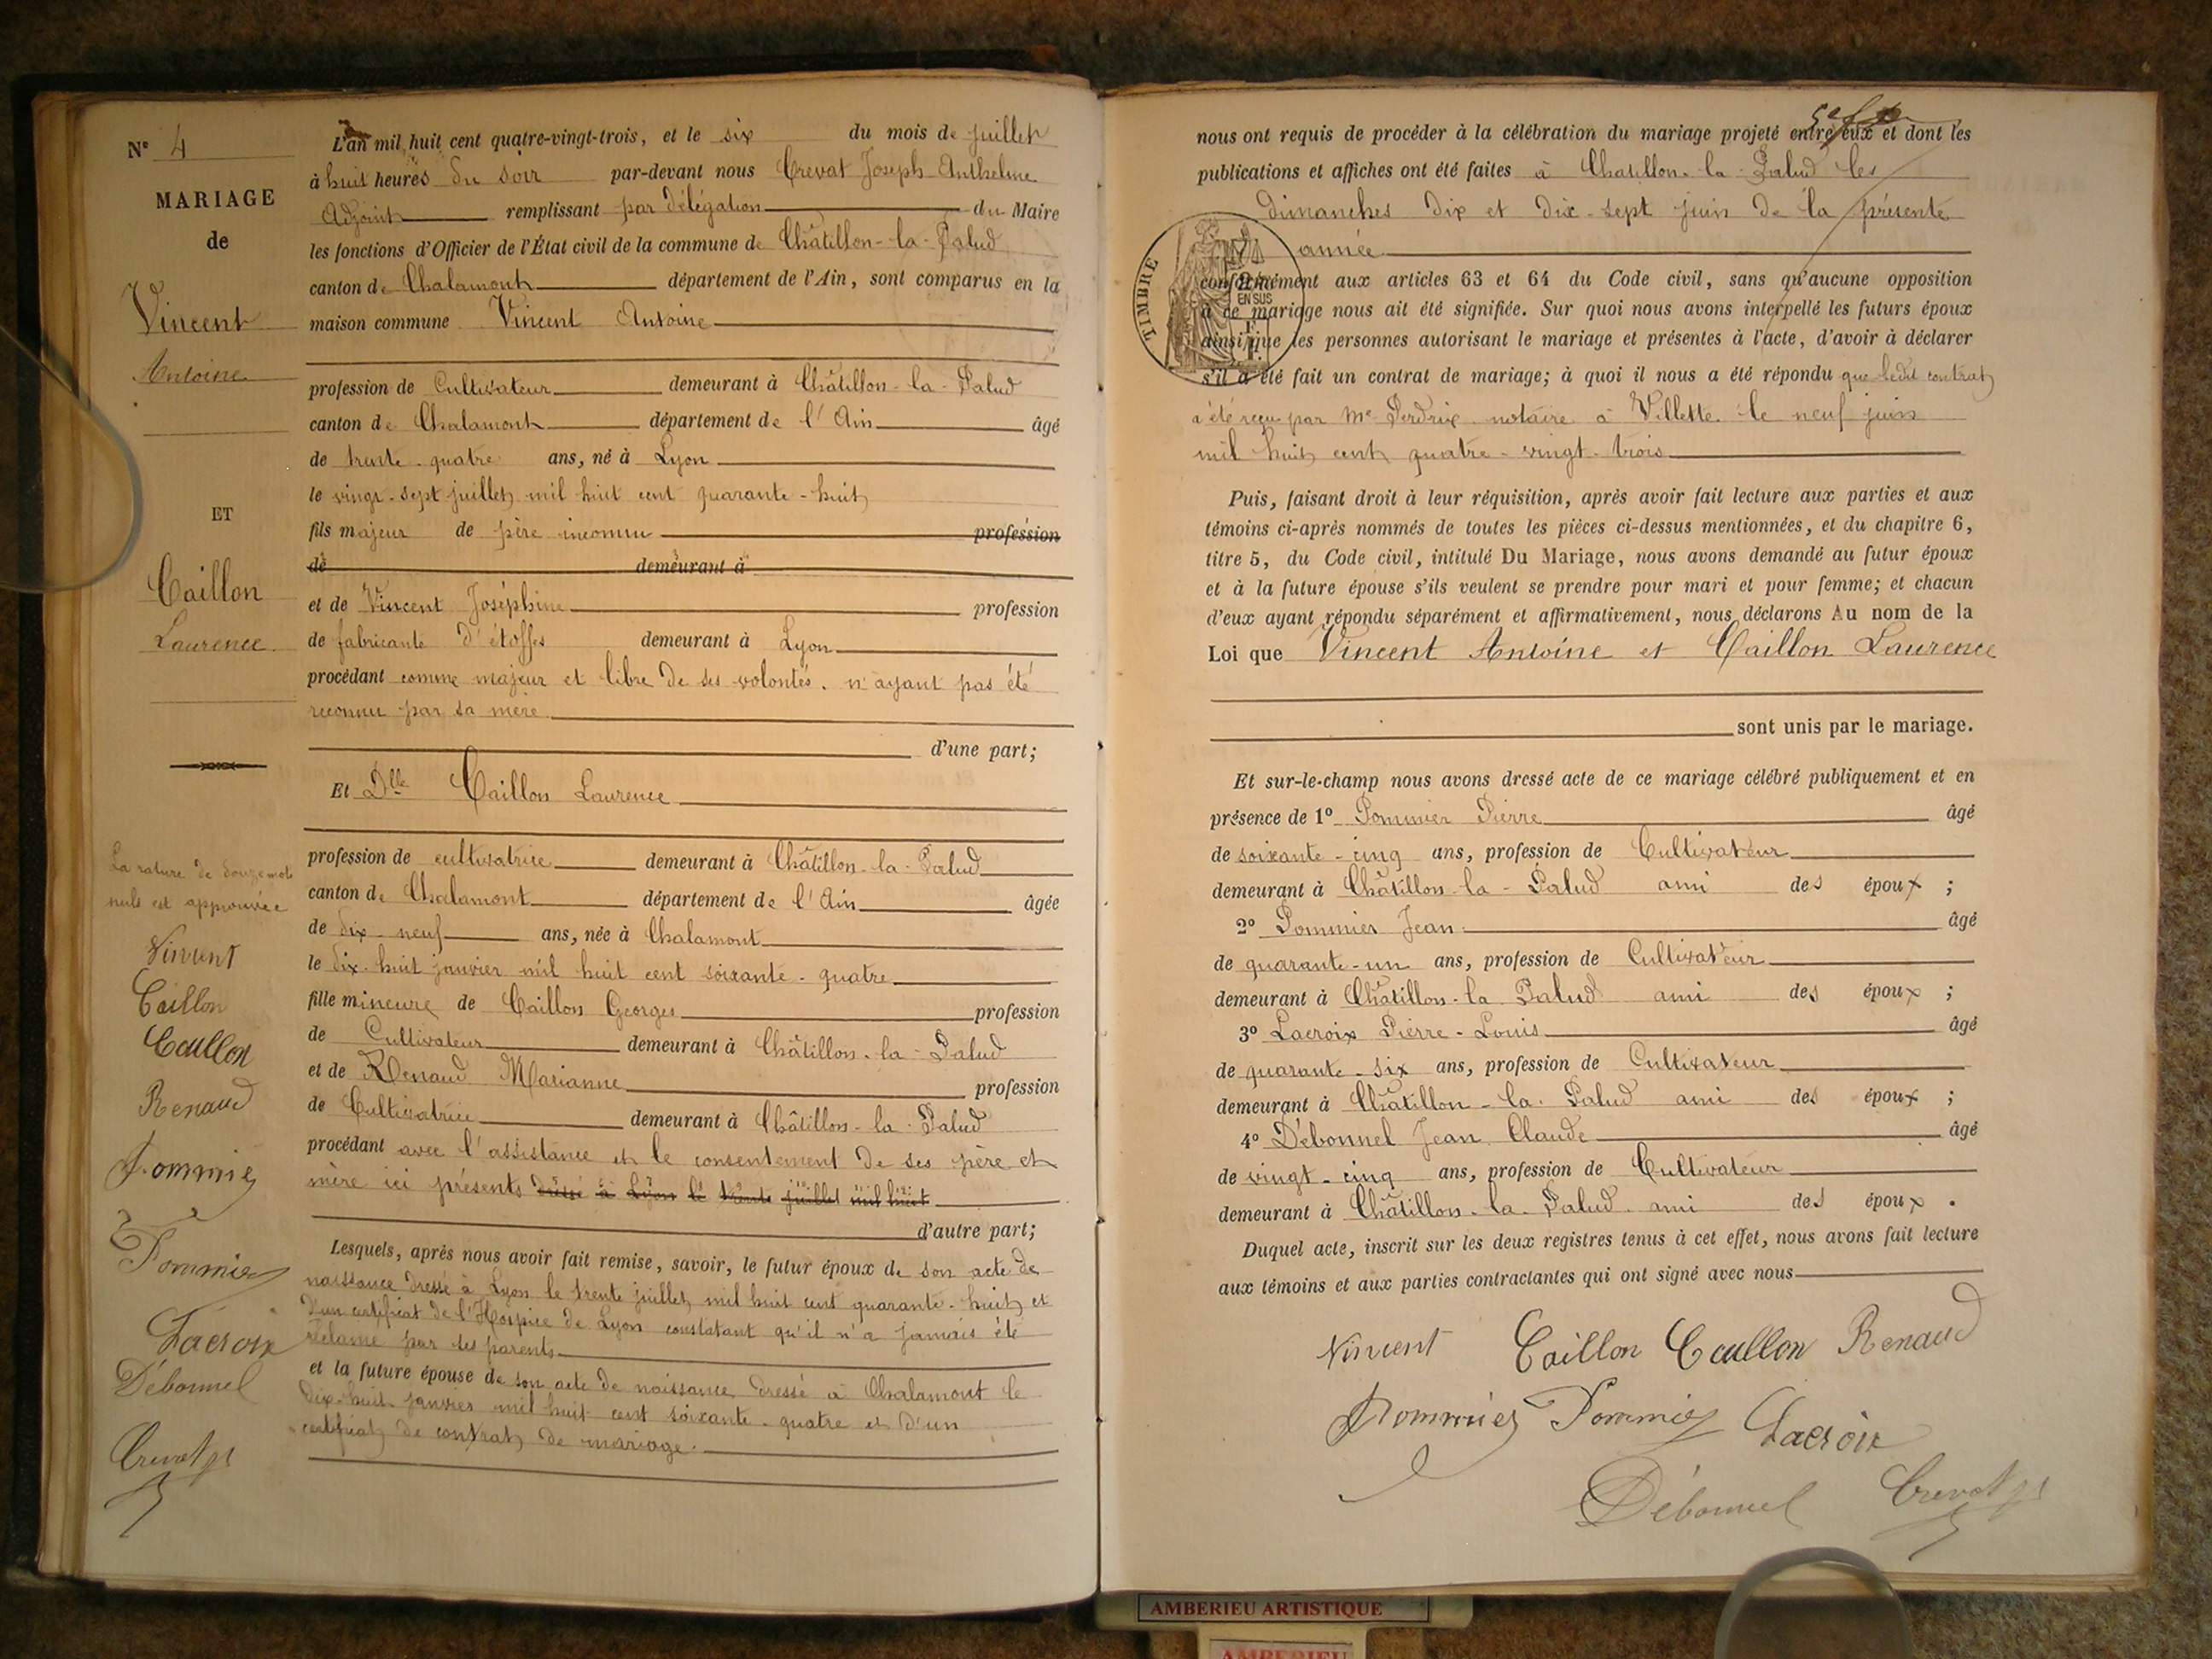 N° 4
MARIAGE
de
Vincent
Antoine
ET
Caillon
Laurence
La rature de douze mots
nuls est approuvée
Vincent
Caillon
Caillon
Renaud
Pommier
Pommier
Lacroix
Débonnel
Crevat
L'an mil huit cent quatre-vingt-trois, et le six du mois de juillet
à huit heures du soir par-devant nous Crevat Joseph-Anthelme
Adjoint remplissant par délégation du Maire
les fonctions d'Officier de l'État civil de la commune de Châtillon-la-Palud
canton de Chalamont département de l'Ain, sont comparus en la
maison commune Vincent Antoine
profession de Cultivateur demeurant à Châtillon-la-Palud
canton de Chalamont département de l'Ain âgé
de trente-quatre ans, né à Lyon
le vingt-sept juillet mil huit cent quarante-huit
fils majeur de père inconnu profession
de demeurant à
et de Vincent Joséphine profession
de fabricante d'étoffes demeurant à Lyon
procédant comme majeur et libre de ses volontés, n'ayant pas été
reconnu par sa mère
d'une part;
Et Dlle Caillon Laurence
profession de cultivatrice demeurant à Châtillon-la-Palud
canton de Chalamont département de l'Ain âgée
de dix-neuf ans, née à Chalamont
le dix-huit janvier mil huit cent soixante-quatre
fille mineure de Caillon Georges profession
de Cultivateur demeurant à Châtillon-la-Palud
et de Renaud Marianne profession
de Cultivatrice demeurant à Châtillon-la-Palud
procédant avec l'assistance et le consentement de ses père et
mère ici présents dressé à Lyon le trente juillet mil huit
d'autre part;
Lesquels, après nous avoir fait remise, savoir, le futur époux de son acte de
naissance dressé à Lyon le trente juillet mil huit cent quarante-huit et
d'un certificat de l'Hospice de Lyon constatant qu'il n'a jamais été
réclamé par ses parents
et la future épouse de son acte de naissance dressé à Chalamont le
dix-huit janvier mil huit cent soixante-quatre et d'un
certificat de contrat de mariage.
nous ont requis de procéder à la célébration du mariage projeté entre eux et dont les
publications et affiches ont été faites à Chatillon-la-Palud les
dimanches dix et dix-sept juin de la présente
année
conformément aux articles 63 et 64 du Code civil, sans qu'aucune opposition
à ce mariage nous ait été signifiée. Sur quoi nous avons interpellé les futurs époux
ainsi que les personnes autorisant le mariage et présentes à l'acte, d'avoir à déclarer
s'il a été fait un contrat de mariage; à quoi il nous a été répondu que ledit contrat
a été reçu par Me Perdrix notaire à Villette le neuf juin
mil huit cent quatre-vingt-trois
TIMBRE
EN SUS
Puis, faisant droit à leur réquisition, après avoir fait lecture aux parties et aux
témoins ci-après nommés de toutes les pièces ci-dessus mentionnées, et du chapitre 6,
titre 5, du Code civil, intitulé Du Mariage, nous avons demandé au futur époux
et à la future épouse s'ils veulent se prendre pour mari et pour femme; et chacun
d'eux ayant répondu séparément et affirmativement, nous déclarons Au nom de la
Loi que Vincent Antoine et Caillon Laurence
sont unis par le mariage.
Et sur-le-champ nous avons dressé acte de ce mariage célébré publiquement et en
présence de 1° Pommier Pierre âgé
de soixante-cinq ans, profession de Cultivateur
demeurant à Châtillon-la-Palud ami des époux ;
2° Pommier Jean âgé
de quarante-un ans, profession de Cultivateur
demeurant à Châtillon-la-Palud ami des époux ;
3° Lacroix Pierre-Louis âgé
de quarante-six ans, profession de Cultivateur
demeurant à Châtillon-la-Palud ami des époux ;
4° Débonnel Jean Claude âgé
de vingt-cinq ans, profession de Cultivateur
demeurant à Châtillon-la-Palud ami des époux .
Duquel acte, inscrit sur les deux registres tenus à cet effet, nous avons fait lecture
aux témoins et aux parties contractantes qui ont signé avec nous
Vincent Caillon Caillon Renaud
Pommier Pommier Lacroix
Débonnel Crevat
AMBERIEU ARTISTIQUE
AMBERIEU